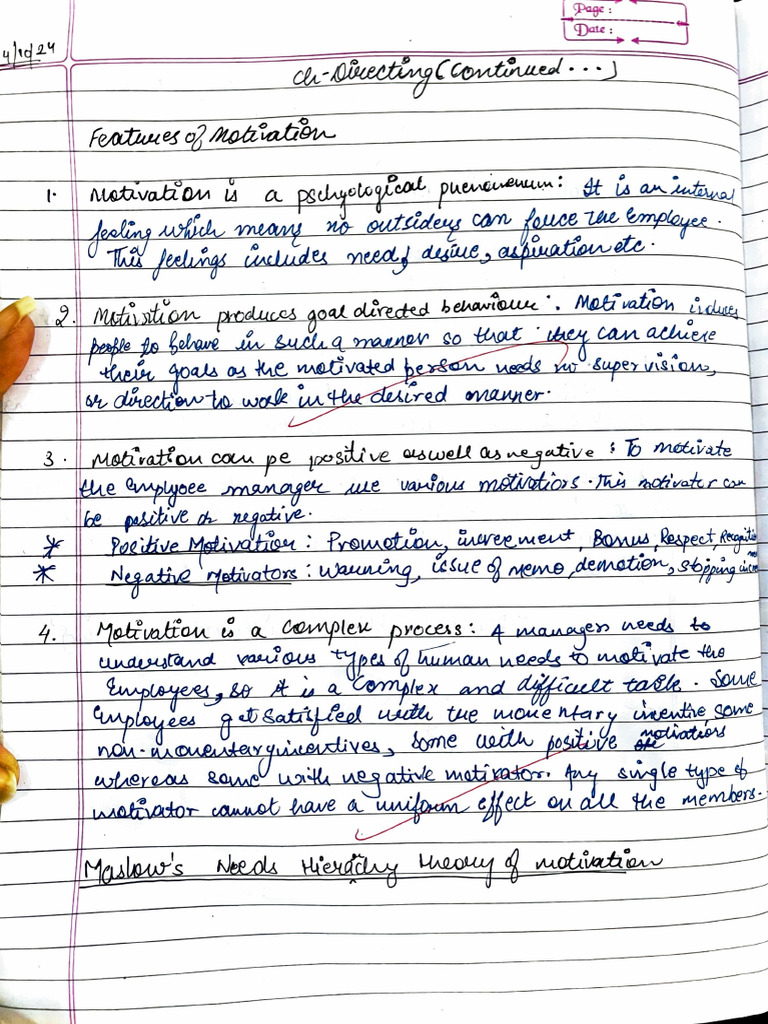 Page :
Date :
4/10/24
Ch-Directing (Continued ...)
Features of Motivation
1. Motivation is a pschyological phenomenum: It is an internal
feeling which means no outsiders can force the employee.
This feelings includes need, desire, aspiration etc.
2. Motivation produces goal directed behaviour: Motivation induces
people to behave in such a manner so that they can achieve
their goals as the motivated person needs no supervision,
or direction to work in the desired manner.
3. Motivation can be positive as well as negative: To motivate
the employee manager use various motivators. This motivator can
be positive or negative.
* Positive Motivation: Promotion, increement, Bonus, Respect Recognition
* Negative Motivators: warning, issue of memo, demotion, stopping
4. Motivation is a complex process: A manager needs to
understand various types of human needs to motivate the
employees, so it is a complex and difficult task. Some
employees get satisfied with the monentary incentive, some
non-monentary incentives, some with positive motivators
whereas some with negative motivator. Any single type of
motivator cannot have a uniform effect on all the members.
Maslow's Needs Hierachy theory of motivation